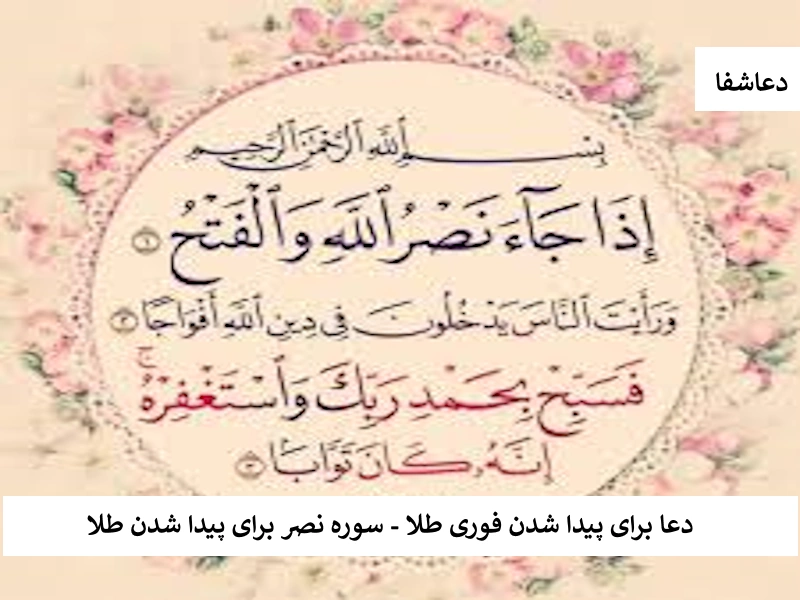 دعاشفا
بِسْمِ ٱللَّهِ ٱلرَّحْمَٰنِ ٱلرَّحِيمِ
إِذَا جَآءَ نَصْرُ ٱللَّهِ وَٱلْفَتْحُ ١
وَرَأَيْتَ ٱلنَّاسَ يَدْخُلُونَ فِى دِينِ ٱللَّهِ أَفْوَاجًا ٢
فَسَبِّحْ بِحَمْدِ رَبِّكَ وَٱسْتَغْفِرْهُ ۚ
إِنَّهُۥ كَانَ تَوَّابًۢا ٣
دعا برای پیدا شدن فوری طلا - سوره نصر برای پیدا شدن طلا